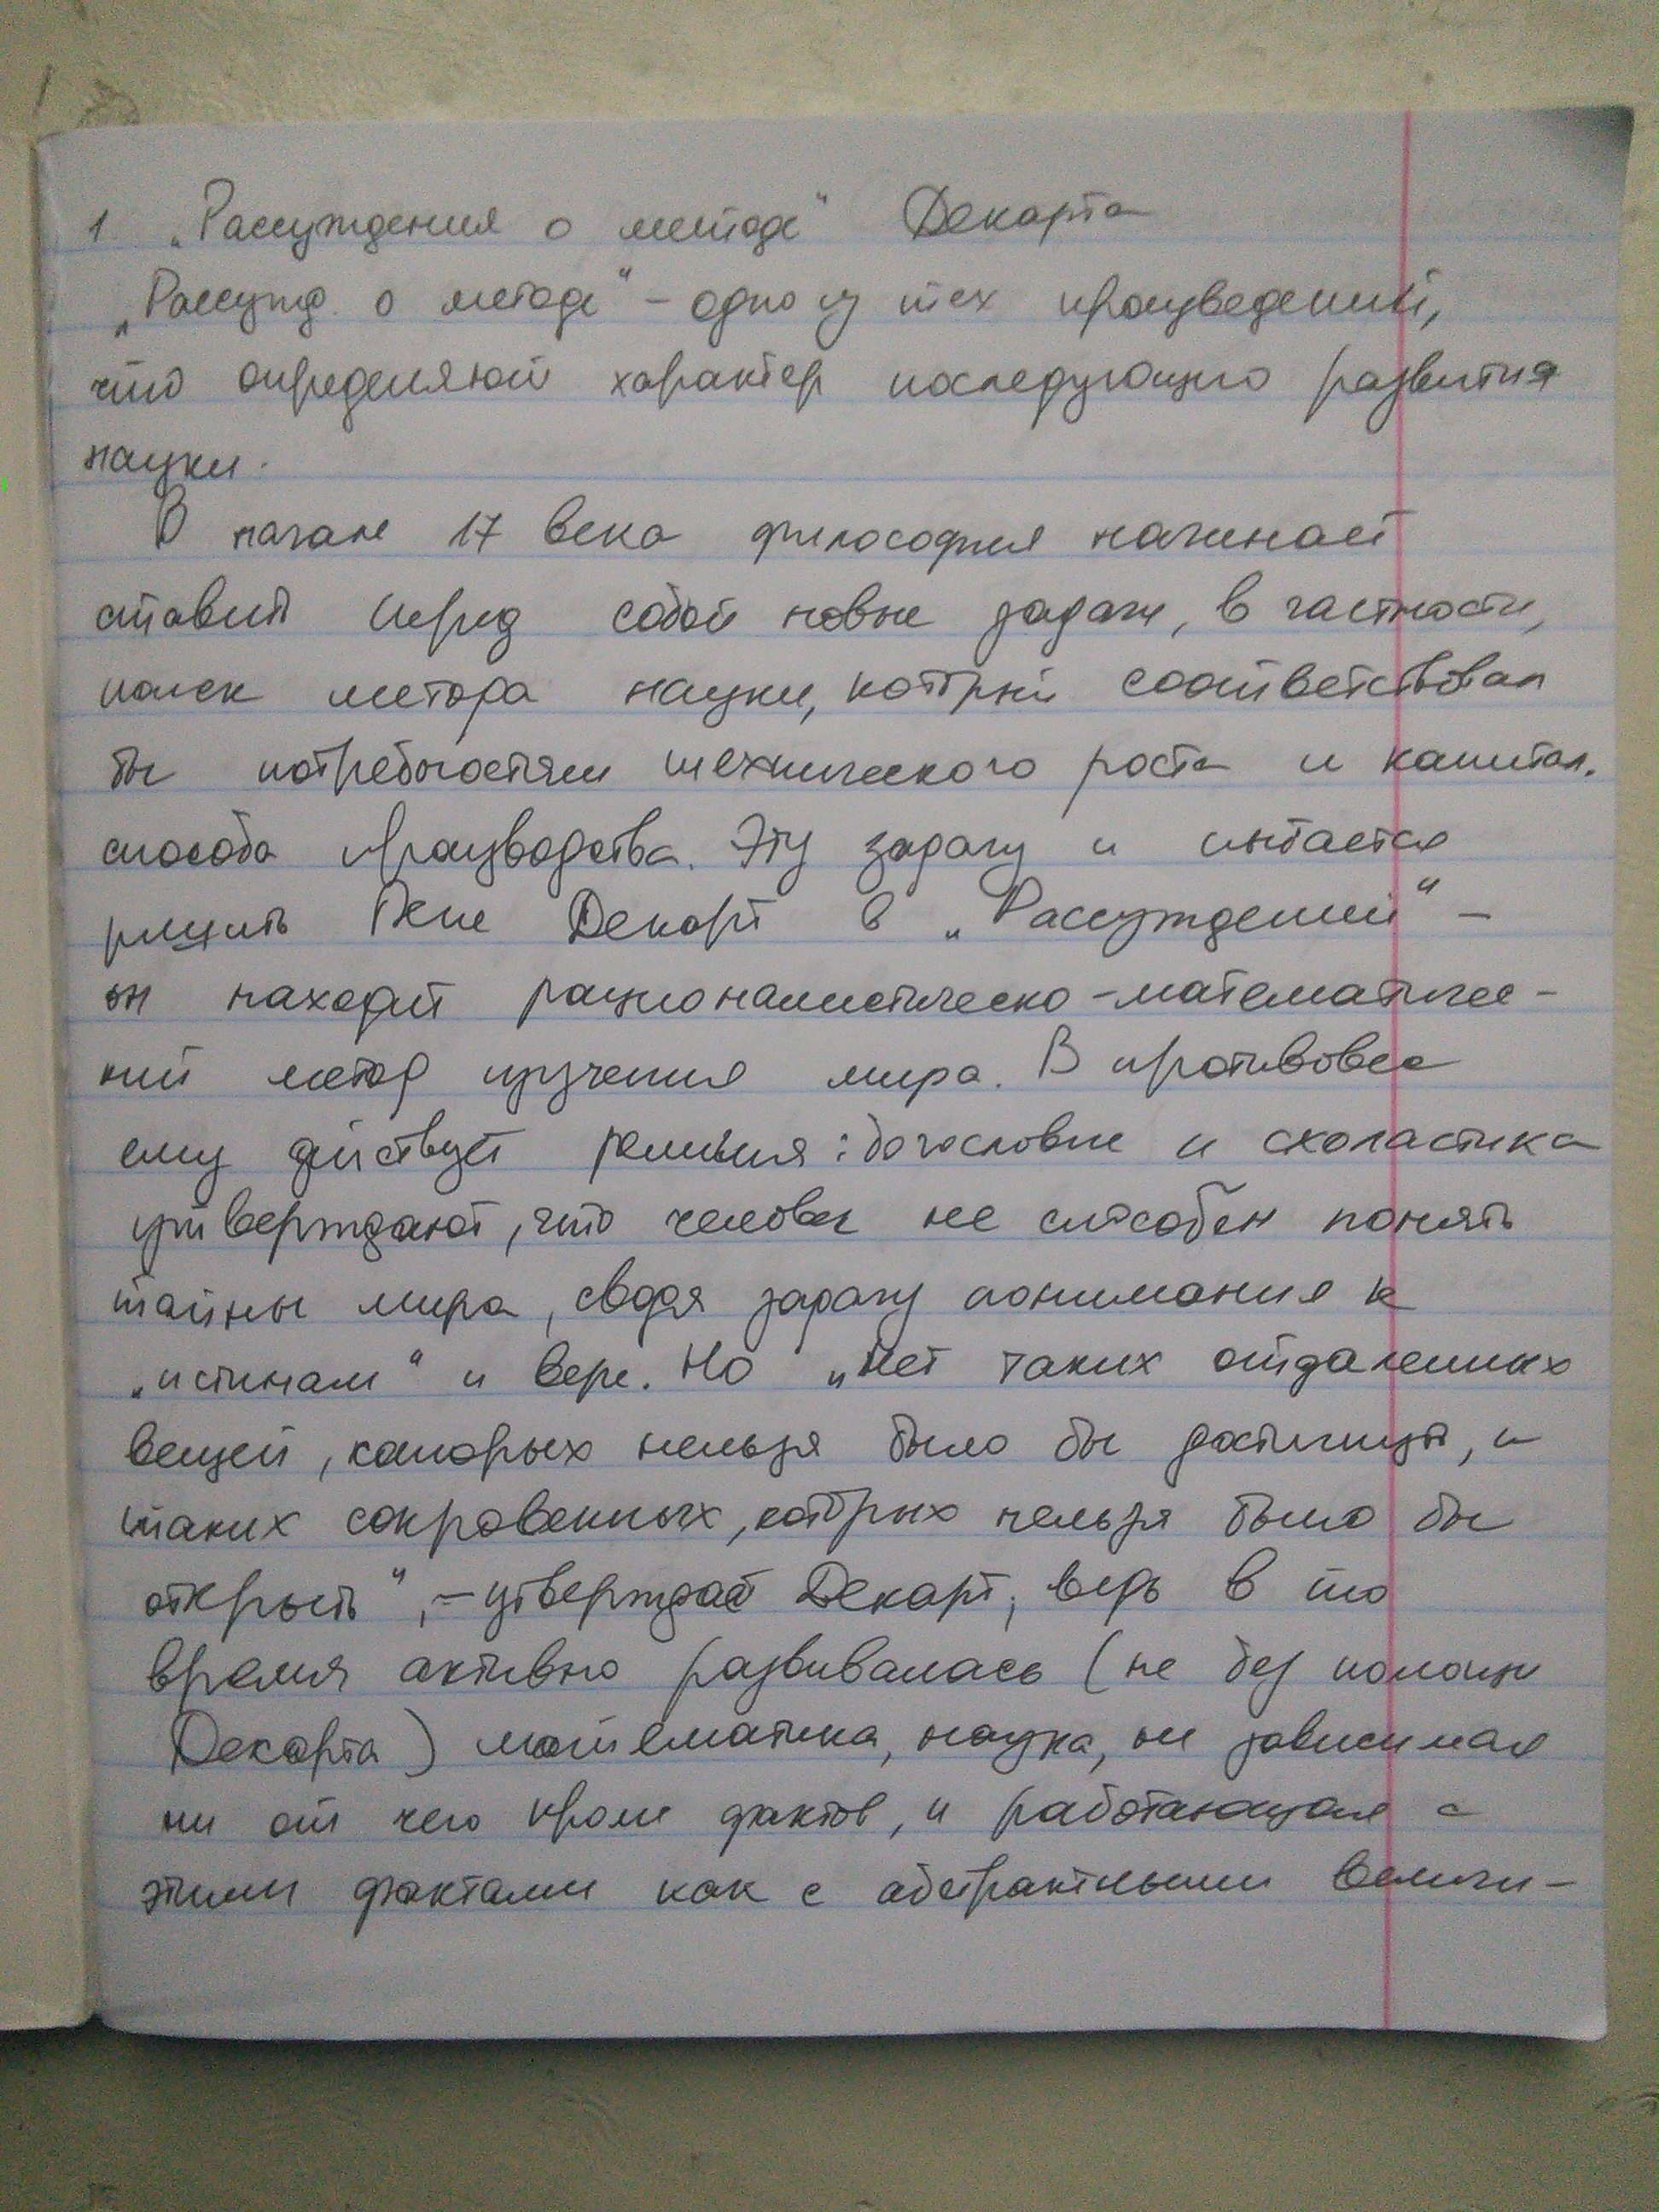 1 „Рассуждения о методе" Декарта
„Рассужд. о методе" – одно из тех произведений,
что определяют характер последующего развития
науки.
В начале 17 века философия начинает
ставить перед собой новые задачи, в частности,
поиск метода науки, который соответствовал
бы потребностям технического роста и капитал.
способа производства. Эту задачу и пытается
решить Рене Декарт в „Рассуждений" –
он находит рационалистическо-математичес-
кий метод изучения мира. В противовес
ему действует религия: богословие и схоластика
утверждают, что человек не способен понять
тайны мира, сводя задачу понимания к
„истинам" и вере. Но „нет таких отдаленных
вещей, которых нельзя было бы достигнуть, и
таких сокровенных, которых нельзя было бы
открыть", – утверждает Декарт, ведь в то
время активно развивалась (не без помощи
Декарта) математика, наука, не зависимая
ни от чего кроме фактов, и работающая с
этими фактами как с абстрактными величи-